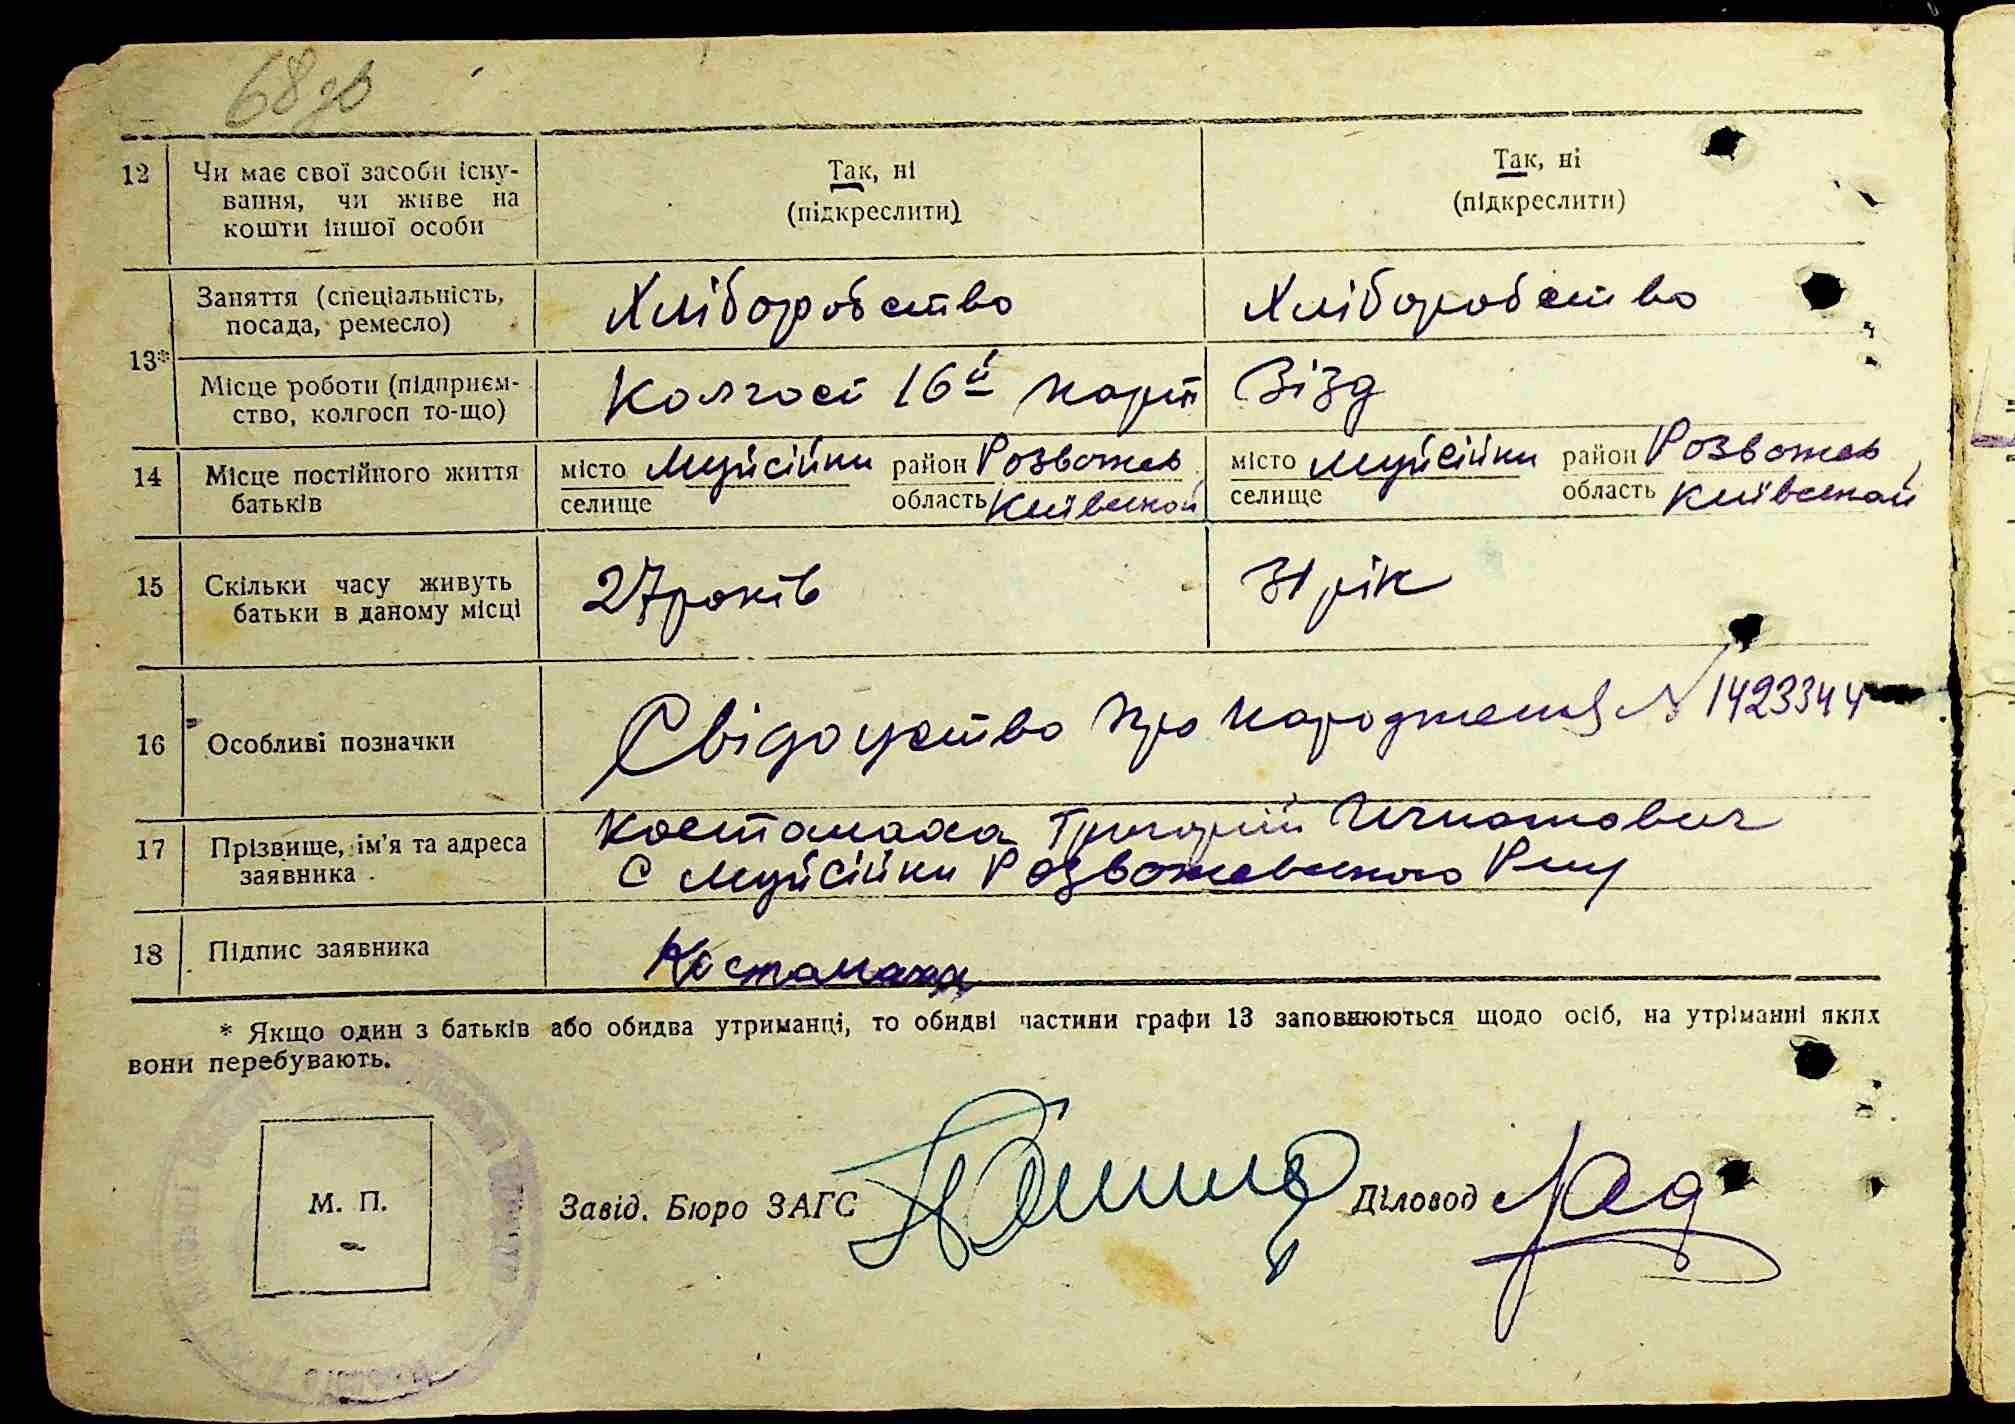 68зв
12 Чи має свої засоби існу-
вання, чи живе на
кошти іншої особи
Так, ні
(підкреслити)
Так, ні
(підкреслити)
13*
Заняття (спеціальність,
посада, ремесло)
Хліборобство
Хліборобство
Місце роботи (підприєм-
ство, колгосп то-що)
Колгосп 16й парт
Зізд
14 Місце постійного життя
батьків
місто Муйсійки район Розважев
селище область Київської
місто Муйсійки район Розважев
селище область Київської
15 Скільки часу живуть
батьки в даному місці
27 років
31 рік
16 Особливі позначки
Свідоцтво про народження N 1423344
17 Прізвище, ім'я та адреса
заявника
Костамаха Григорій Игнатович
С Муйсійки Розважевського Р-ну
18 Підпис заявника
Костамаха
* Якщо один з батьків або обидва утриманці, то обидві частини графи 13 заповнюються щодо осіб, на утріманні яких
вони перебувають.
М. П.
Завід. Бюро ЗАГС
Діловод